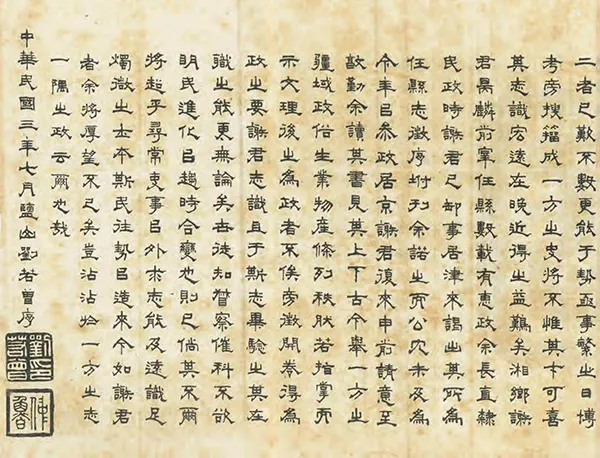 二者已歎不數更能于勢亟事繁之日博
考旁搜籀成一方之史將不惟其才可喜
其志識宏遠在晚近得之益難矣湘鄉謝
君昺麟前宰任縣數載有惠政余長直隸
民政時謝君已卸事居津來謁出其所為
任縣志徵序坿刊余諾之而公冗未及為
今年㠯叅政居京謝君復來申前請意至
勤余讀其書見其上下古今舉一方之
疆域政俗生業物產條列秩然若指掌而
示文理後之為政者不俟旁徵開卷得為
政之要謝君志識且于斯志畢驗之其在
職之能更無論矣古徒知督察催科不欲
明民進化㠯趨時合變也則已倘其不爾
將超乎尋常吏事㠯外求志能及遠識足
燭微之士本斯民往勢㠯造來今如謝君
者余將厚望不已矣豈沾沾於一方之志
一隅之政云爾也哉
中華民國三年七月鹽山劉若曾序
劉若曾印
仲魯